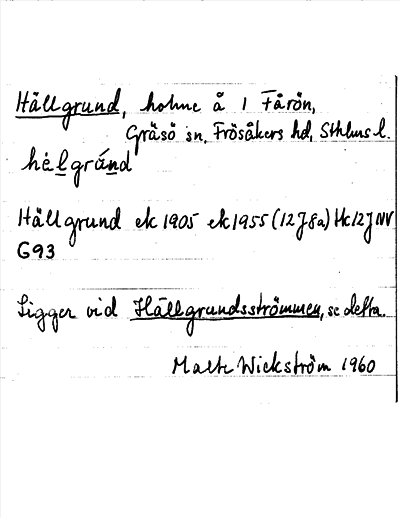 Hällgrund, holme å 1 Fårön,
Gräsö sn, Frösåkers hd, Sthlms l.
hèlgránd
Hällgrund ek 1905 ek 1955 (12J8a) Hc12JNV
G93
Ligger vid Hällgrundsströmmen, se detta.
Malte Wickström 1960